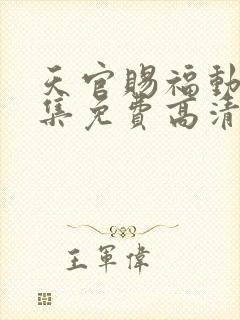 天官賜福動
集免費高清
王軍偉